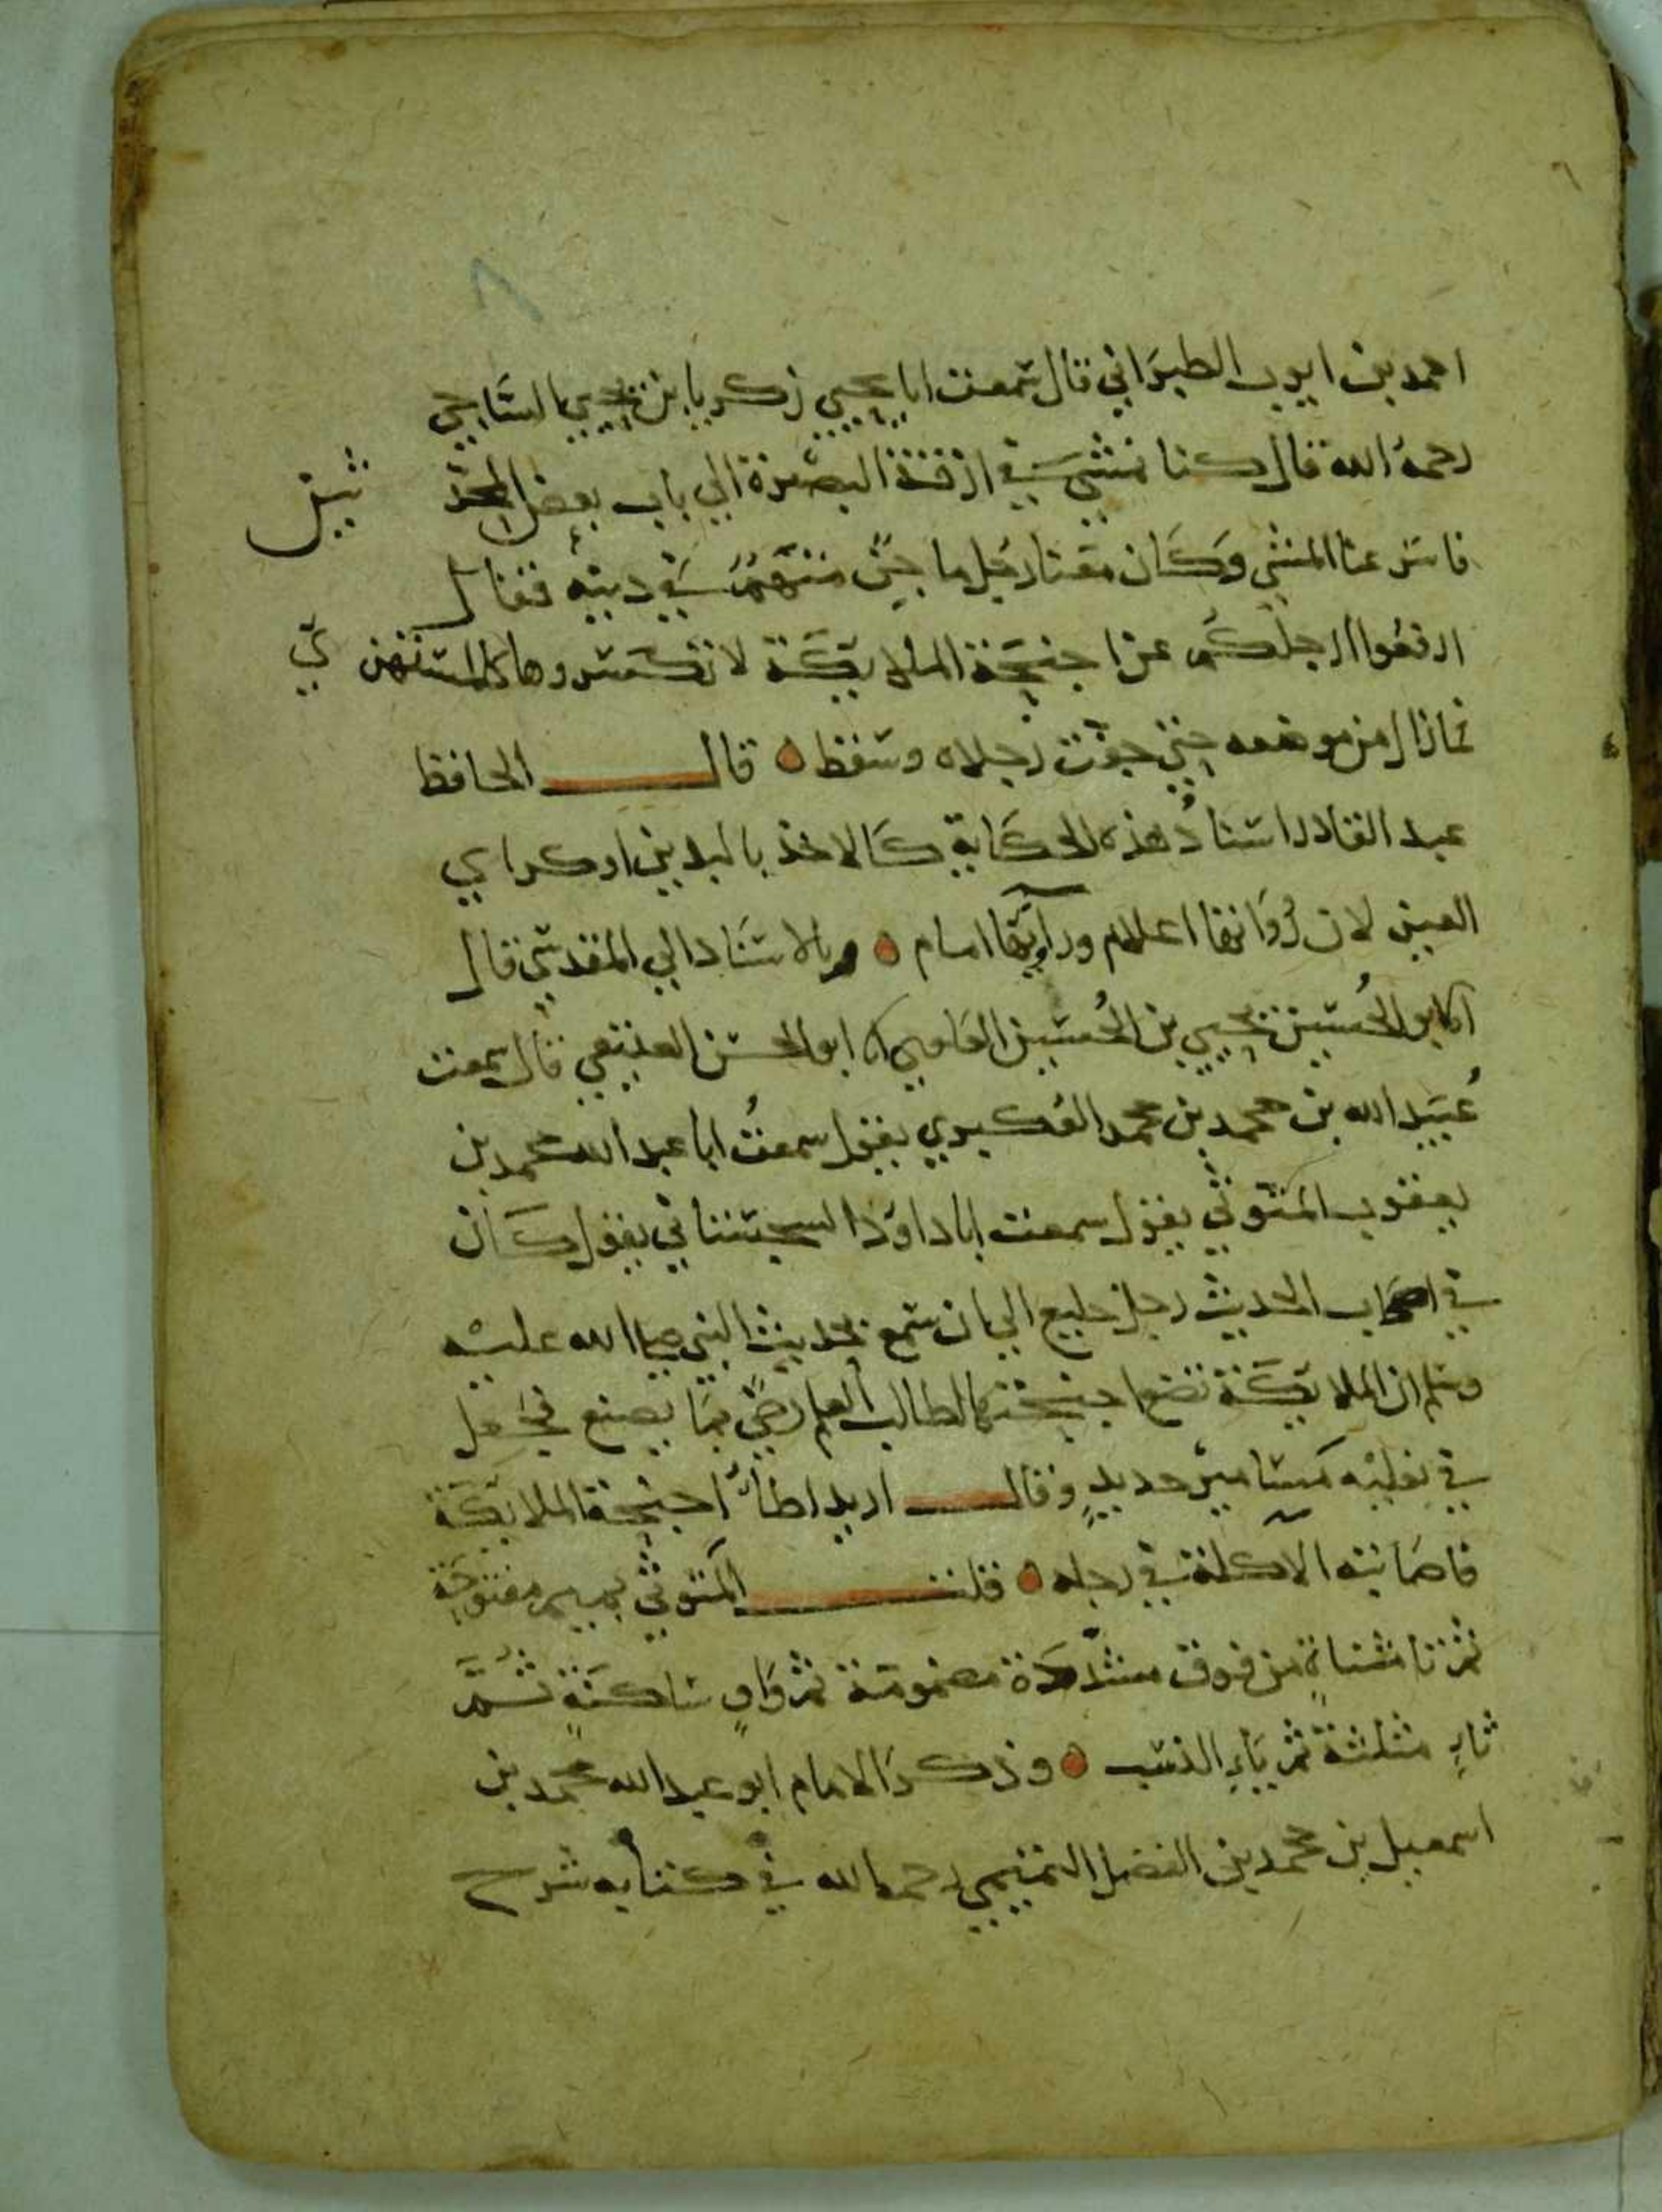 احمد بن ايوب الطبراني قال سمعت ابا يحيي زكريا بن يحيي الساجي
رحمه الله قال كنا نمشي في ازقة البصرة الي باب بعض المحد ثين
فاسرعنا المشي وكان معنا رجل ماجن متهم في دينه فقال
ارفعوا ارجلكم عن اجنحة الملايكة لا تكسروها كالمستهزي
فما زال من موضعه حتي جفت رجلاه وسقط ٥ قال الحافظ
عبد القادر اسناد هذه الحكاية كالاخذ باليدين او كراي
العين لان رواتها اعلام وراويها امام ٥ وبالاسناد الي المقدسي قال
انا ابو الحسين يحيي بن الحسين العلوي انا ابو الحسن العتيقي قال سمعت
عبيد الله بن محمد بن محمد العكبري يقول سمعت ابا عبد الله محمد بن
يعقوب المتوثي يقول سمعت ابا داود السجستاني يقول كان
في اصحاب الحديث رجل خليع الي ان سمع بحديث النبي صلي الله عليه
وسلم ان الملايكة تضع اجنحتها لطالب العلم رضي بما يصنع فجعل
في نعليه مسامير حديد وقال اريد اطأ اجنحة الملايكة
فاصابته الاكلة في رجله ٥ قلت المتوثي بميم مفتوحة
ثم تا مثناة من فوق مشددة مضمومة ثم واو ساكنة ثم
ثاء مثلثة ثم ياء النسب ٥ وذكر الامام ابو عبد الله محمد بن
اسمعيل بن محمد بن الفضل التميمي رحمه الله في كتابه شرح